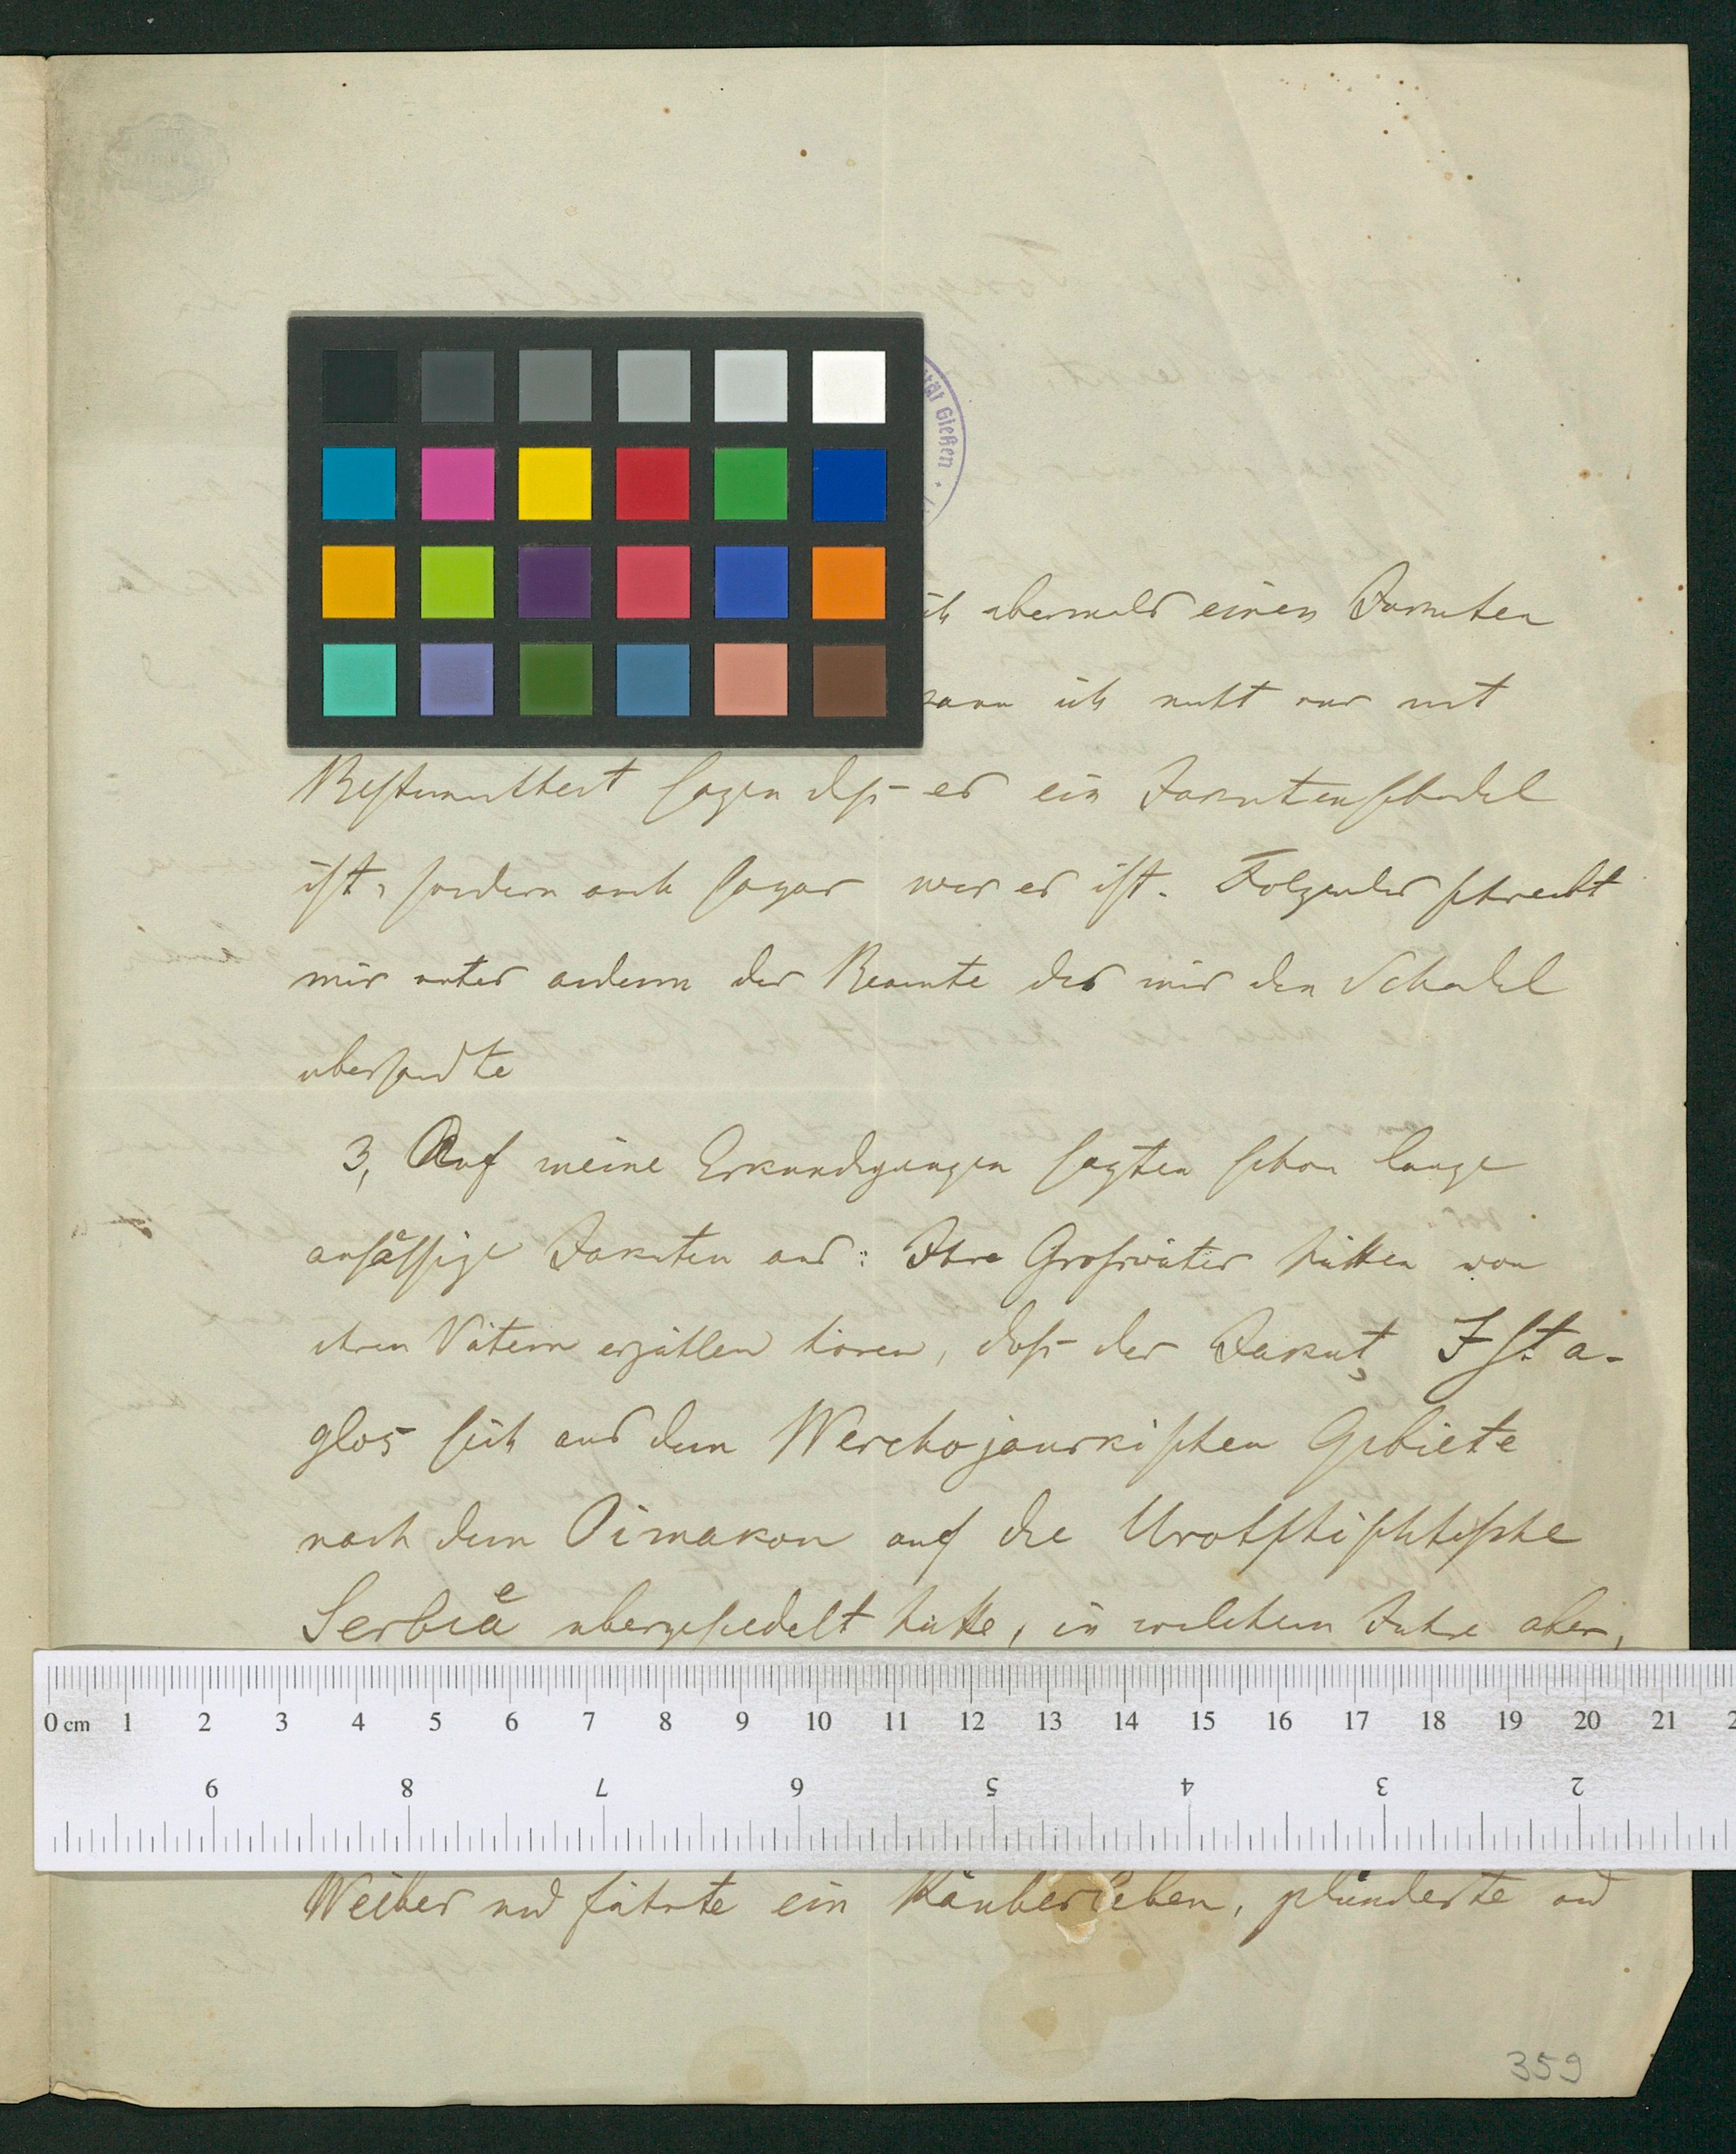 ität Gießen
ich abermals einen Jakuten
kann ich nicht nur mit
Bestimmtheit sagen daß er ein Jakutenschädel
ist, sondern auch sogar wer er ist. Folgendes schreibt
mir unter anderm der Beamte der mir den Schadel
übersandte
3, Auf meine Erkundigungen sagten schon lange
ansässige Jakuten aus: Ihre Großväter hätten von
ihren Vätern erzählen hören, daß der Jakut, Ista-
glos sich aus dem Werchojanskischen Gebiete
nach dem Oimakon auf die
übergesiedelt hätte, in welchem Jahre aber,
0 cm 1 2 3 4 5 6 7 8 9 10 11 12 13 14 15 16 17 18 19 20 21
9 8 7 6 5 4 3 2
Weiber und führte ein Räuberleben, plünderte und
359